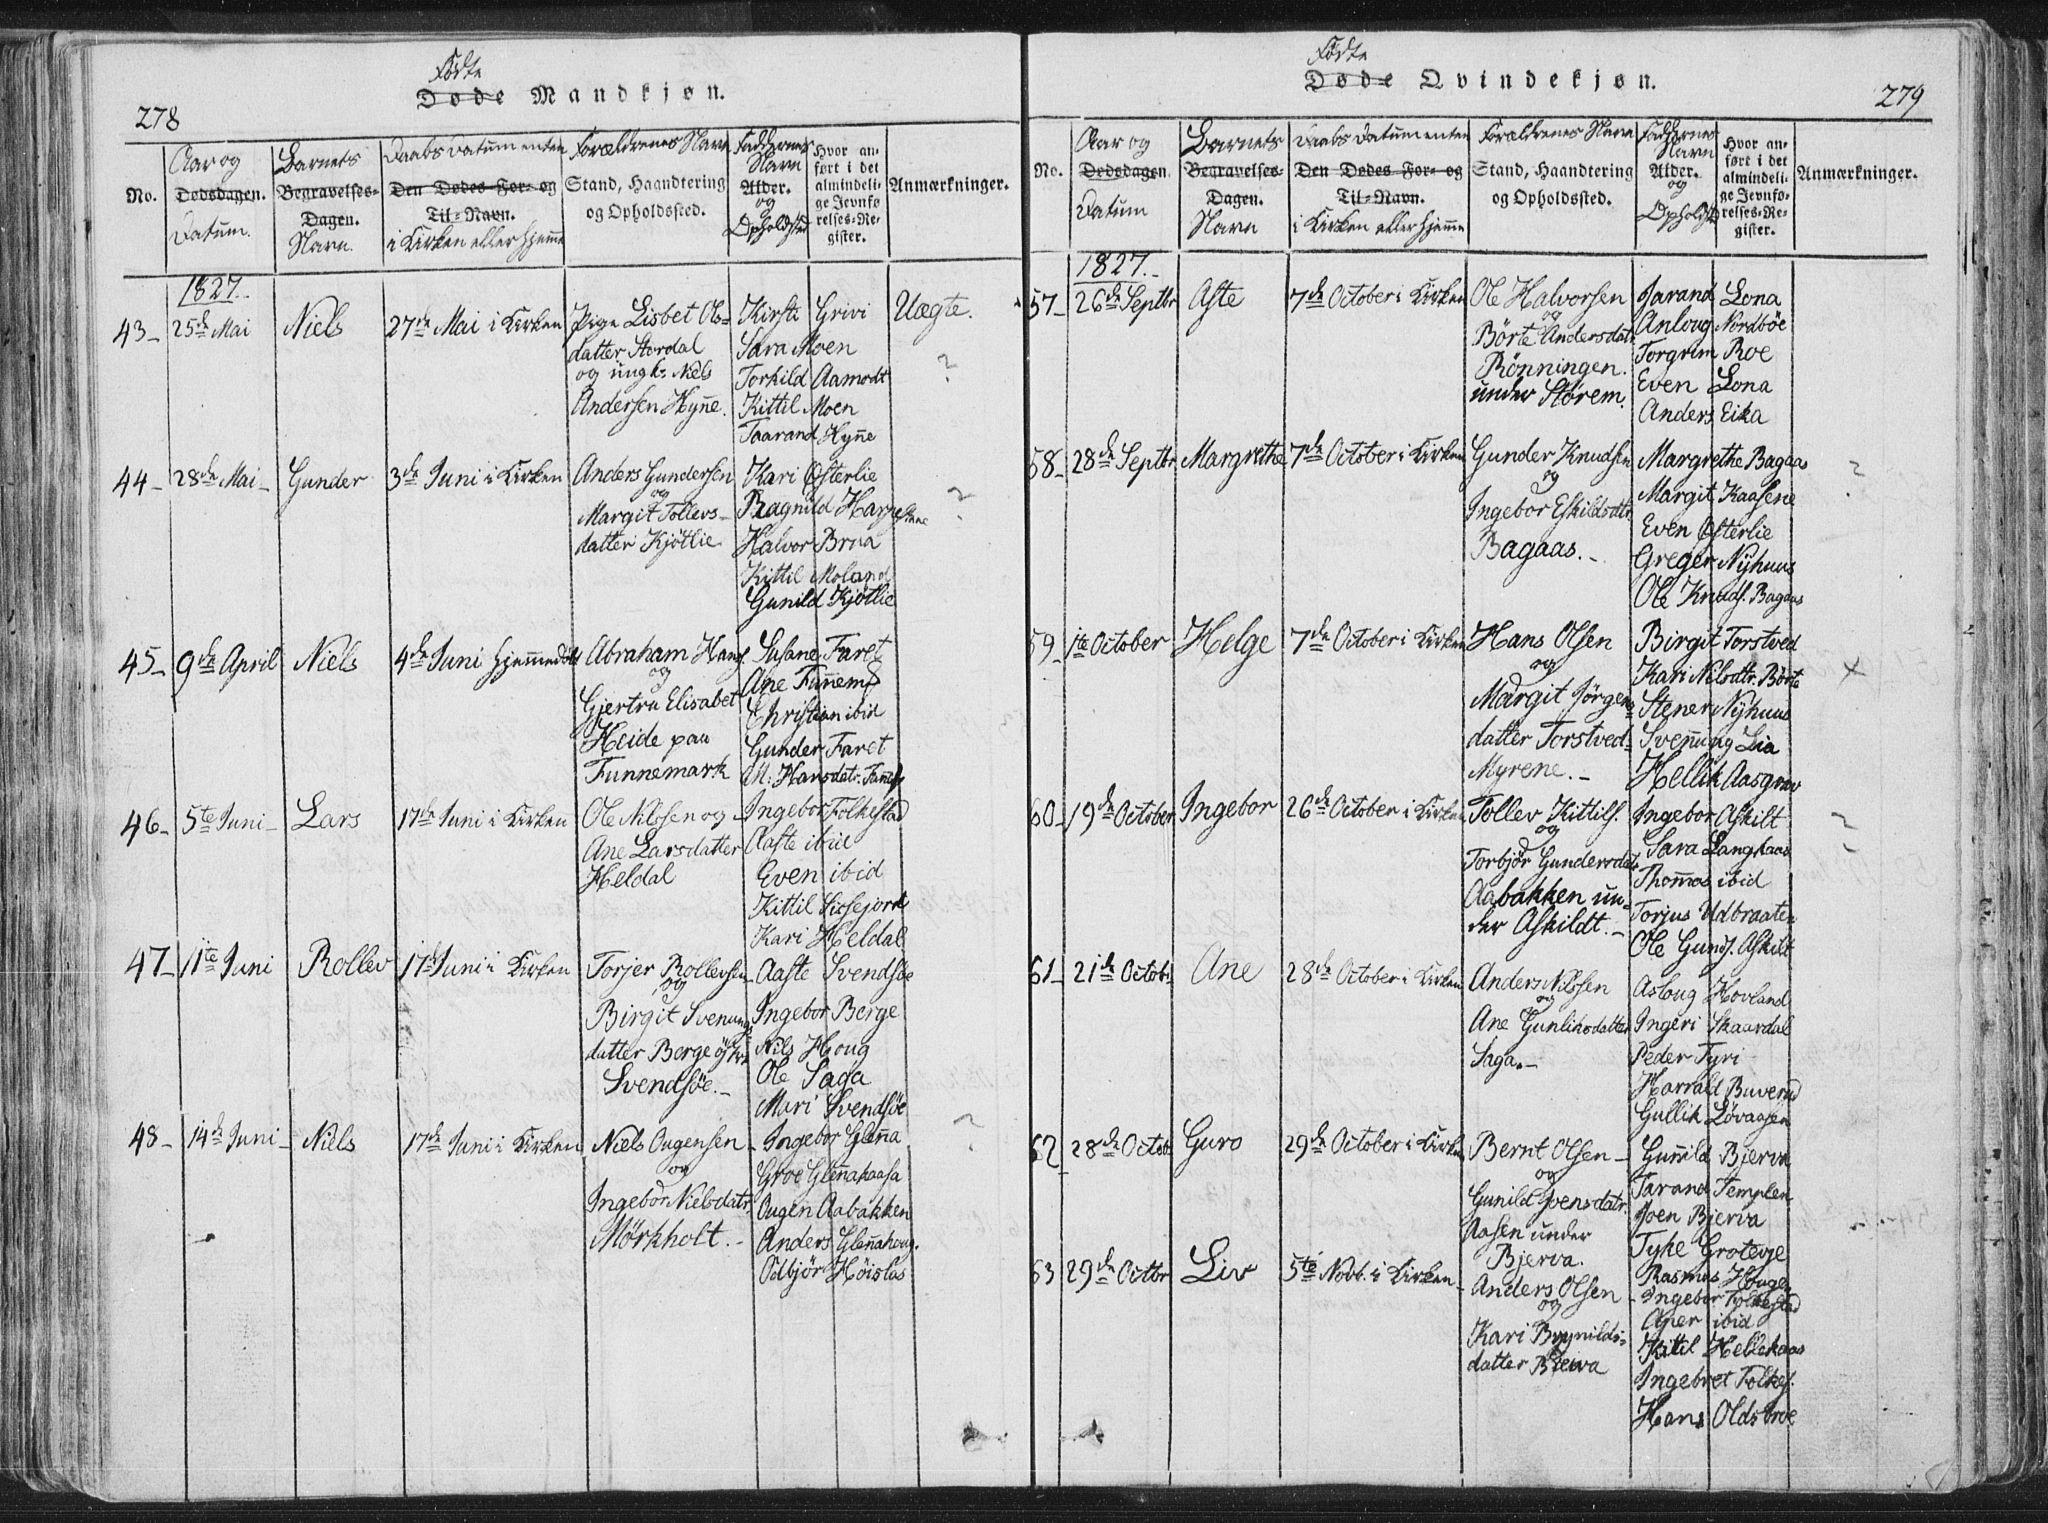 278
Fødte
Døde Mandkjøn.
No.
Aar og
Dødsdagen.
Datum.
Barnets
Begravelses-
Dagen.
Navn.
Daabs datum enten
Den Dødes For- og
Til-Navn.
i Kirken eller hjemme
Forældrenes Navn
Stand, Haandtering
og Opholdssted.
Faddernes
Navn
Alder.
og
Opholdsted
Hvor an-
ført i det
almindeli-
ge Jevnfø
relses-Re-
gister.
Anmærkninger.
1827.
43-
25de Mai
Niels
27de Mai i Kirken
Pige Lisbet Ols-
datter Stordal
og ungk: Niels
Andersen Hyñe.
Kirsti Grivi
Sara Moen
Torkild Aamodt
Kittil Moen
Taarand Hyñe
Uægte.
?
44-
28de Mai-
Gunder
3de Juni i Kirken
Anders Gundersen
og
Margit Tollevs-
datter Kjøtlie
Kari Østerlie
Ragnild
Halvor Brua
Kittil Moland
Gunild Kjøtlie
?
45-
9de April
Niels
4de Juni hjemmedøbt
Abraham Hans
og
Gjertru Elisabet
Heide paa
Funnemark
Susane Faret
Ane Funnem
Christian ibid
Gunder Faret
M: Hansdatr.
46-
5te Juni-
Lars
17de Juni i Kirken
Ole Nilssen og
Ane Larsdatter
Heldal
Ingebor Folkestad
Aaste ibid
Even ibid
Kittil
Kari Heldal
47-
11te Juni
Rollev
17de Juni i Kirken
Torjer Rollevsen
og
Birgit Svenungs
datter Berge
Svendsøe.-
Aaste Svendsøe
Ingebor Berge
Nils Houg
Ole Saga
Mari Svendsøe
48-
14de Juni-
Niels
17de Juni i Kirken
Niels Ougensen-
og
Ingebor Nielsdatr.
Mørkholt.-
Ingebor Gleñna
Groe Gleñakaasa
Ougen Aabakken
Anders Gleñahoug.
Odbjør Høisaas
?
279
Fødte
Døde Qvindekjøn.
No.
Aar og
Dødsdagen
Datum
Barnets
Begravelses-
Dagen.
Navn
Daabs datum enten
Den Dødes For- og
Til-Navn.
i Kirken eller hjemme
Forældrenes Navn
Stand, Haandtering
og Opholdssted.
Faddernes
Navn
Alder.
og
Opholdst
Hvor an-
ført i det
almindeli-
ge Jevnfø-
relses-Re-
gister.
Anmærkninger.
1827.-
57-
26de Septbr
Aste
7de October i Kirken
Ole Halvorsen
og
Börte Andersdatr
Rönningen.
under Störem.
Jarand Lona
Anloug Nordböe
Torgrim Roe
Even Lona
Anders Eika
58-
28de Septbr
Margrethe
7de October i Kirken
Gunder Knudsen
og
Ingebor Eskildsdtr
Bagaas.-
Margrethe Bagaas
Margit Kaasene
Even Østerlie
Greger Nyhuus
Ole Knuds. Bagaas
?
59-
1te October
Helge
7de October i Kirken
Hans Olsen
og
Margit Jørgens
datter Torstved-
Myrene.-
Birgit Torstved
Kari Nilsdtr. Børte
Stener Nyhuus
Sveñung Lia
Hellik Aasgrav
x
60-
19de October
Ingebor
26de October i Kirken
Tollev Kittils.
og
Torbjør Gundersdatr
Aabakken un-
der Askildt.-
Ingebor Askilt
Sara Langkaas
Thomas ibid
Torjus Udbraate
Ole Gunds. Askilt
?
61-
21de Octob.
Ane
28de October i Kirken
Anders Nilssen
og
Ane Gunliksdatter
Saga.-
Asloug Hovland
Ingeri Skaardal
Peder Tyri
Harrald Buverud
Gullik Løvaasen
62
28de Octob.
Guro
29de October i Kirken
Bernt Olsen-
og
Gunild Ivensdatr.
Aasen under
Bjerva.
Guñild Bjerva
Tarand Templen
Joen Bjerva
Tyke Grotevje
Rasmus Houge
63
29de Octbr
Liv
5te Novb. i Kirken-
Anders Olsen
og
Kari Brynilds-
datter Breiva
Ingebor Folkestad
Aper ibid
Kittil Hellekaas
Ingebret Folkes.
Hans Oldsbroe